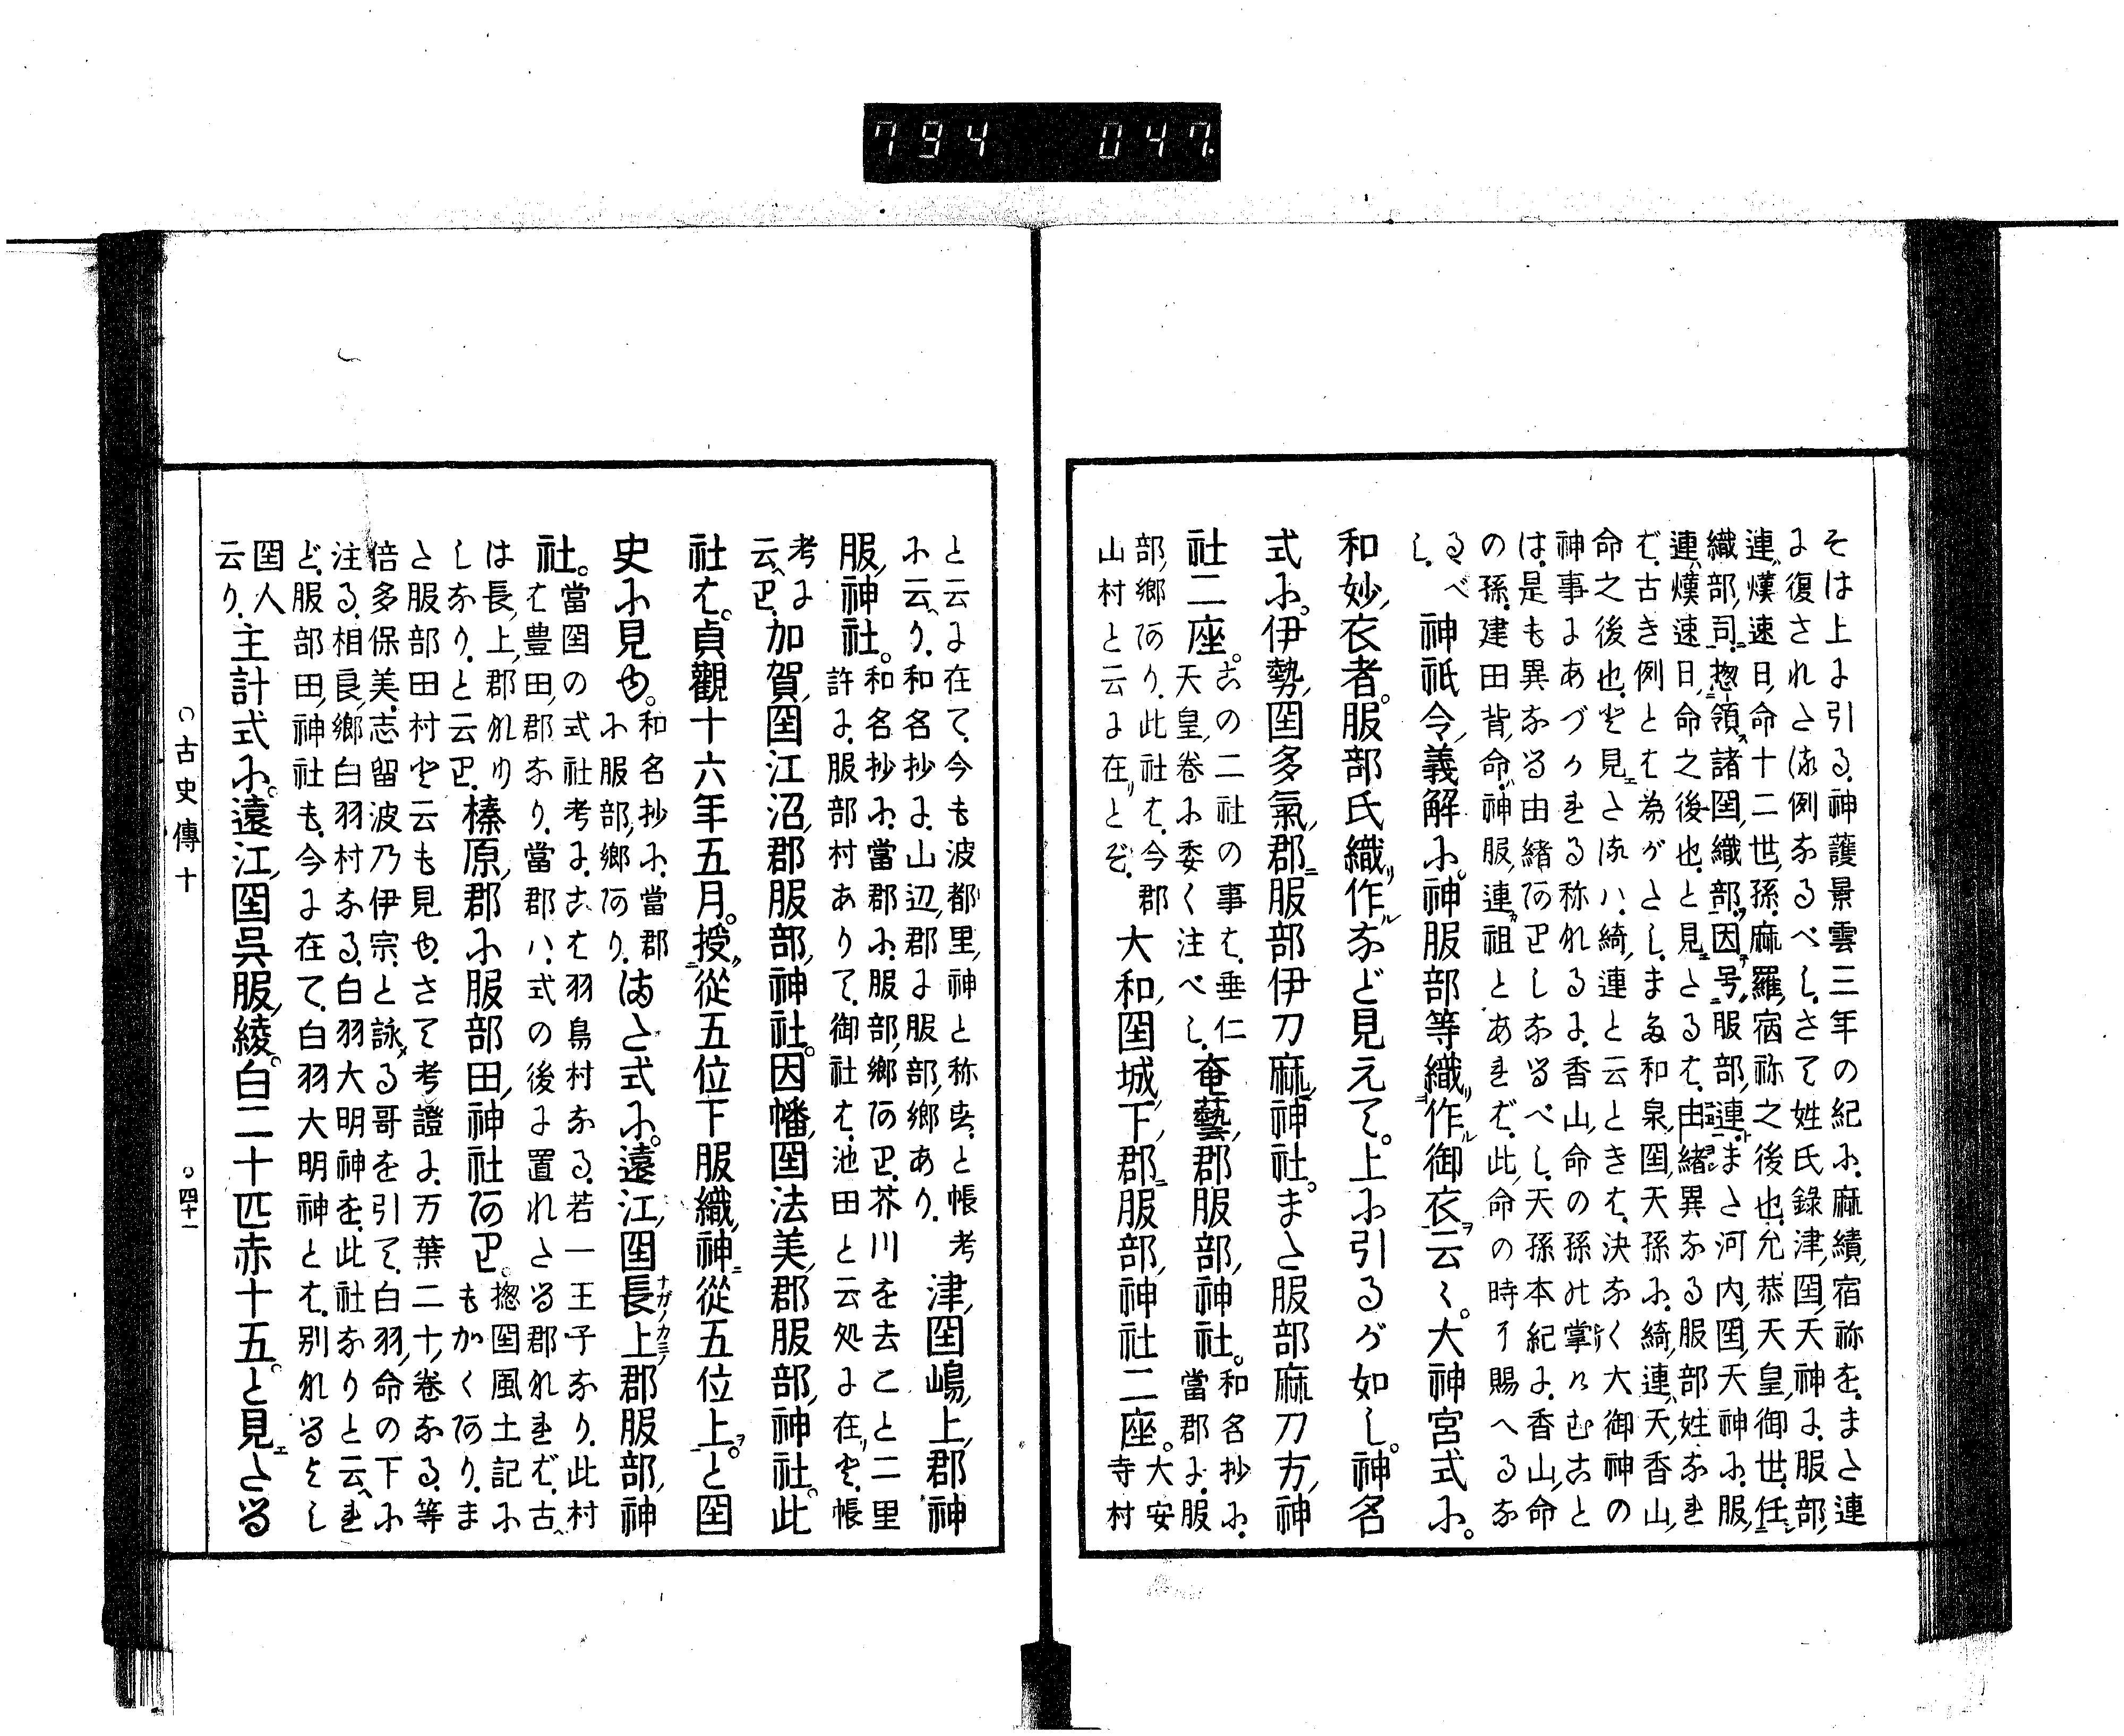 794 047
そは上に引る。神護景雲三年の紀に。麻績宿祢を。また連
に復されたる例なるべし。さて姓氏錄津國天神に。服部
連。熯速日命十二世孫。麻羅宿祢之後也。允恭天皇御世。任
織部司。惣領諸国織部。因号服部連。また河内国天神に。服
連。熯速日命之後也。と見えたるは。由緒異なる服部姓なれ
ば。古き例とは為がたし。また和泉国天孫に。綺連。天香山
命之後也。と見えたるハ。綺連と云ときは。決なく大御神の
神事にあづかれる称なるに。香山命の孫の掌なむことゝ
は。是も異なる由緒ありしなるべし。天孫本紀に。香山命
の孫。建田背命。神服連祖とあれば。此命の時に賜へるな
るべ
し。
神祇令義解に。神服部等織作御衣云々。大神宮式に。
和妙衣者。服部氏織作など見えて。上に引るが如し。神名
式に。伊勢国多氣郡服部伊刀麻神社。また服部麻刀方神
社二座。
この二社の事は。垂仁
天皇卷に委く注べし。
奄藝郡服部神社。
和名抄に。
當郡に。服
部郷あり。此社は。今郡
山村と云に在とぞ。
大和国城下郡服部神社二座。
大安
寺村
と云に在て。今も波都里神と称す。と帳考
に云へり。和名抄に。山辺郡に服部郷あり。
津国嶋上郡神
服神社。
和名抄に。當郡に。服部郷あり。芥川を去こと二里
許に。服部村ありて。御社は。池田と云処に在と。帳
考に
云へり。
加賀国江沼郡服部神社。因幡国法美郡服部神社。此
社は。貞觀十六年五月。授從五位下服織神從五位上。と国
史に見ゆ。
和名抄に。當郡
に服部郷あり。
また式に。遠江国長上郡服部神
社。
當国の式社考に。こは羽鳥村なる。若一王子なり。此村
は豊田郡なり。當郡ハ。式の後に置れたる郡なれば。古へ
は長上郡なり
しなり。と云り。
榛原郡に服部田神社あり。
惣国風土記に
もかくあり。ま
た服部田村と云も見ゆ。さて考證に。万葉二十卷なる。等
倍多保美。志留波乃伊宗。と詠る哥を引て。白羽命の下に
注る。相良郷白羽村なる。白羽大明神を。此社なりと云れ
ど。服部田神社も。今に在て。白羽大明神とは。別なるよし
国人
云り。
主計式に。遠江国呉服綾。白二十匹赤十五。と見えたる
○古史傳十
○四十一